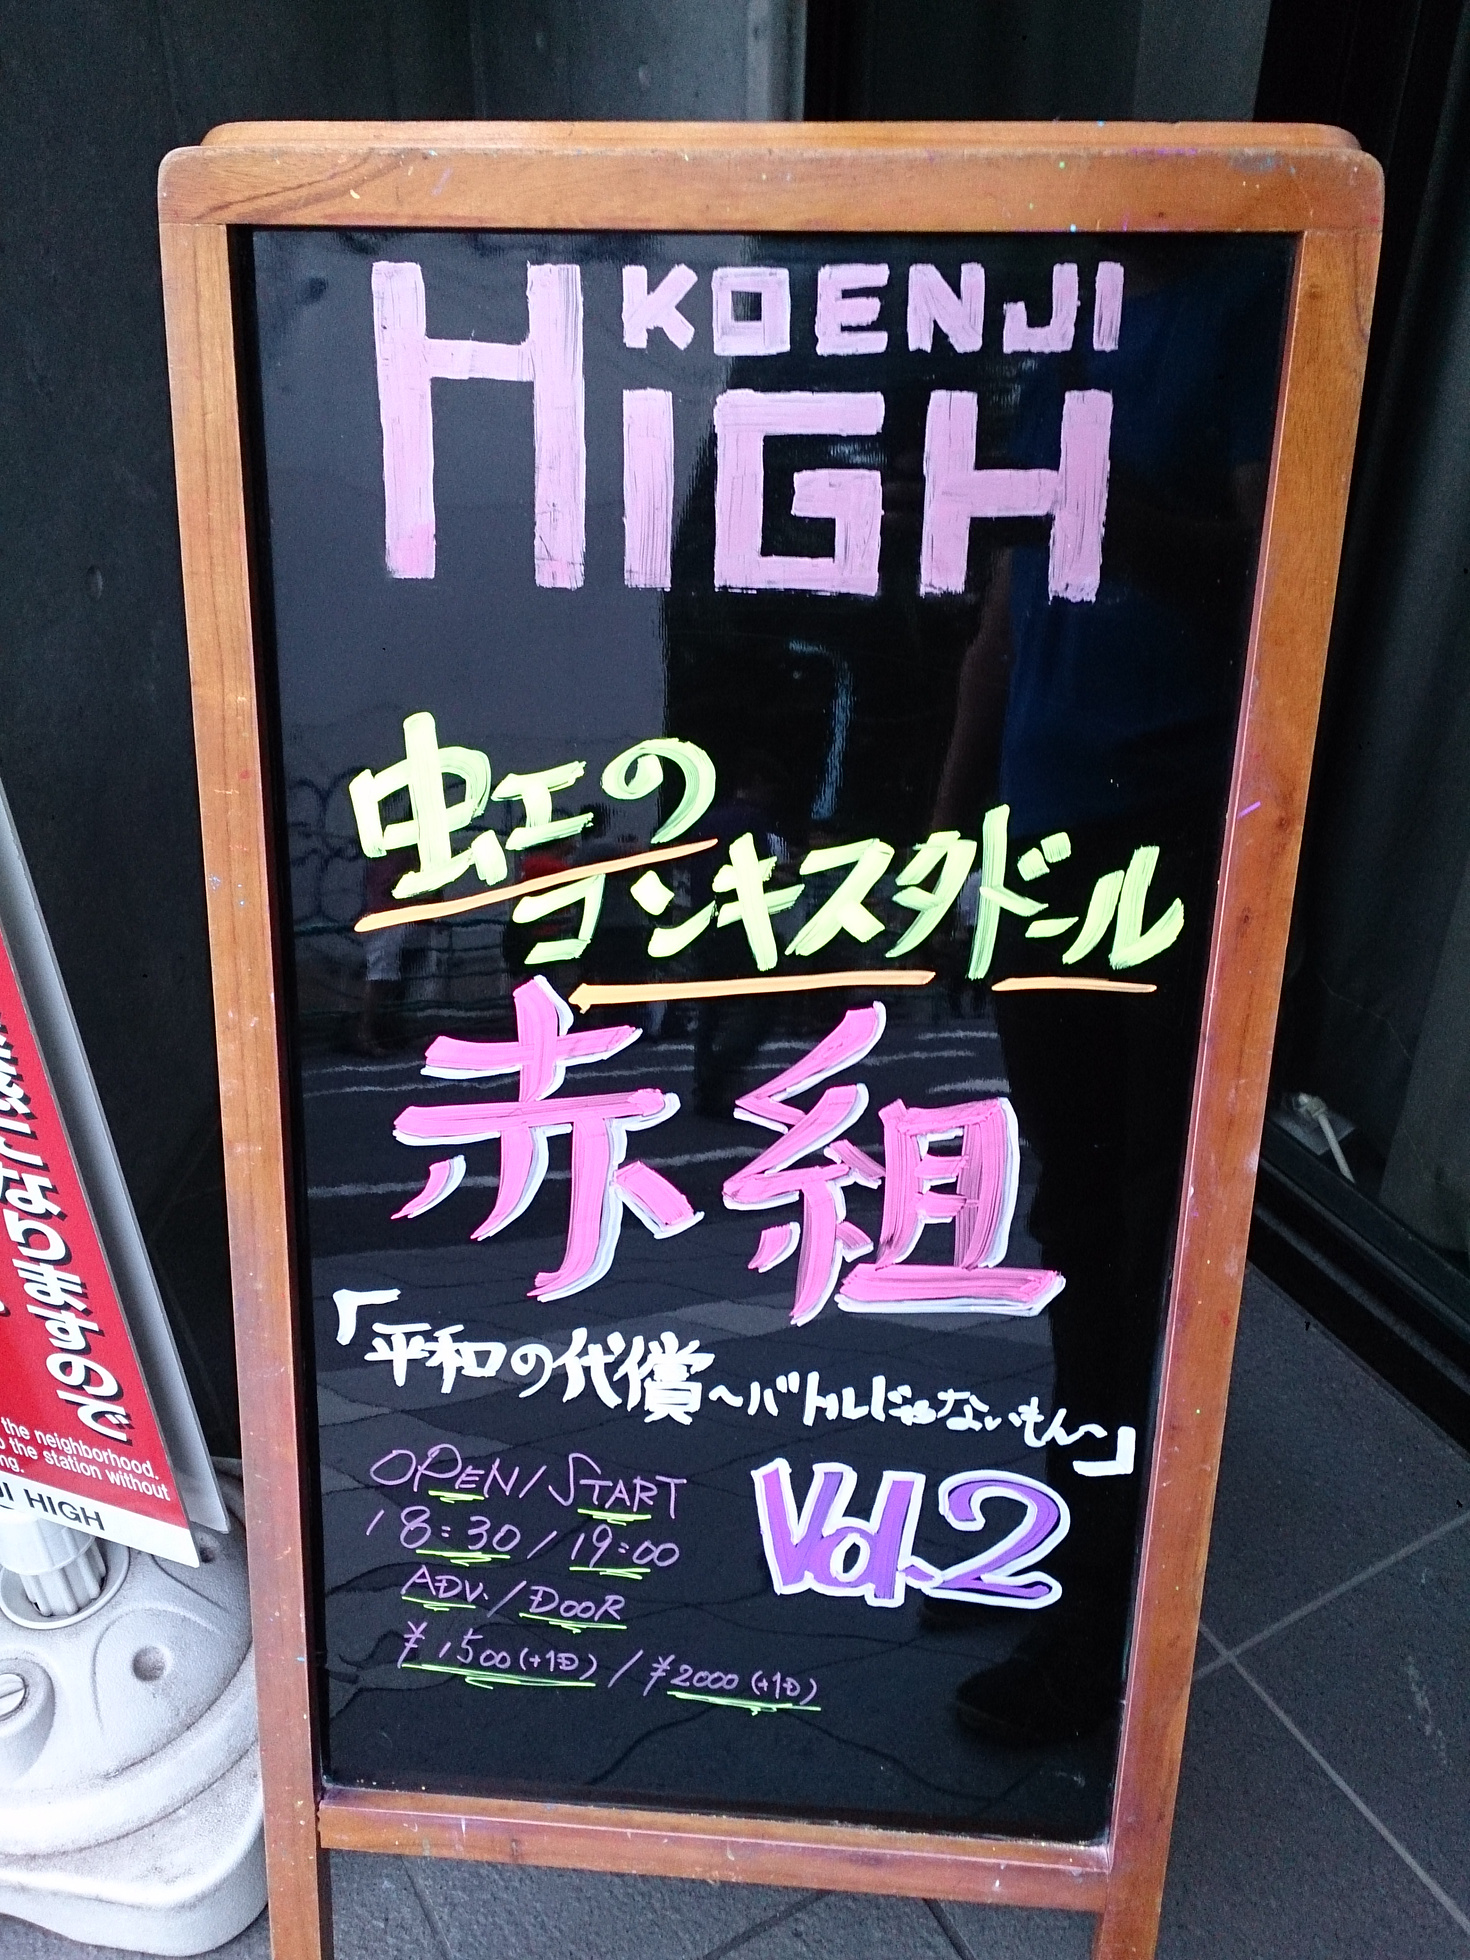 KOENJI
HIGH
虹の
コンキスタドール
赤組
「平和の代償〜バトルじゃないもん〜」
Vol.2
OPEN/START
18:30/19:00
ADV./DOOR
¥1500(+1D)/¥2000(+1D)
なりますので
the neighborhood.
the station without
ng.
JI HIGH